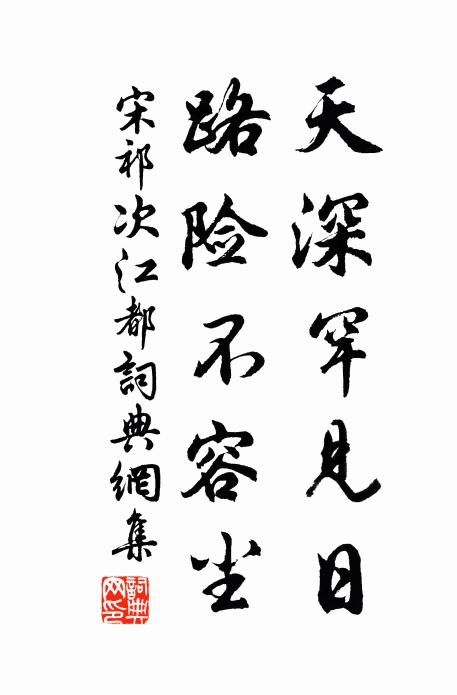 天深罕见日
路险不容尘
宋祁次江都詞典網集
詞典网印